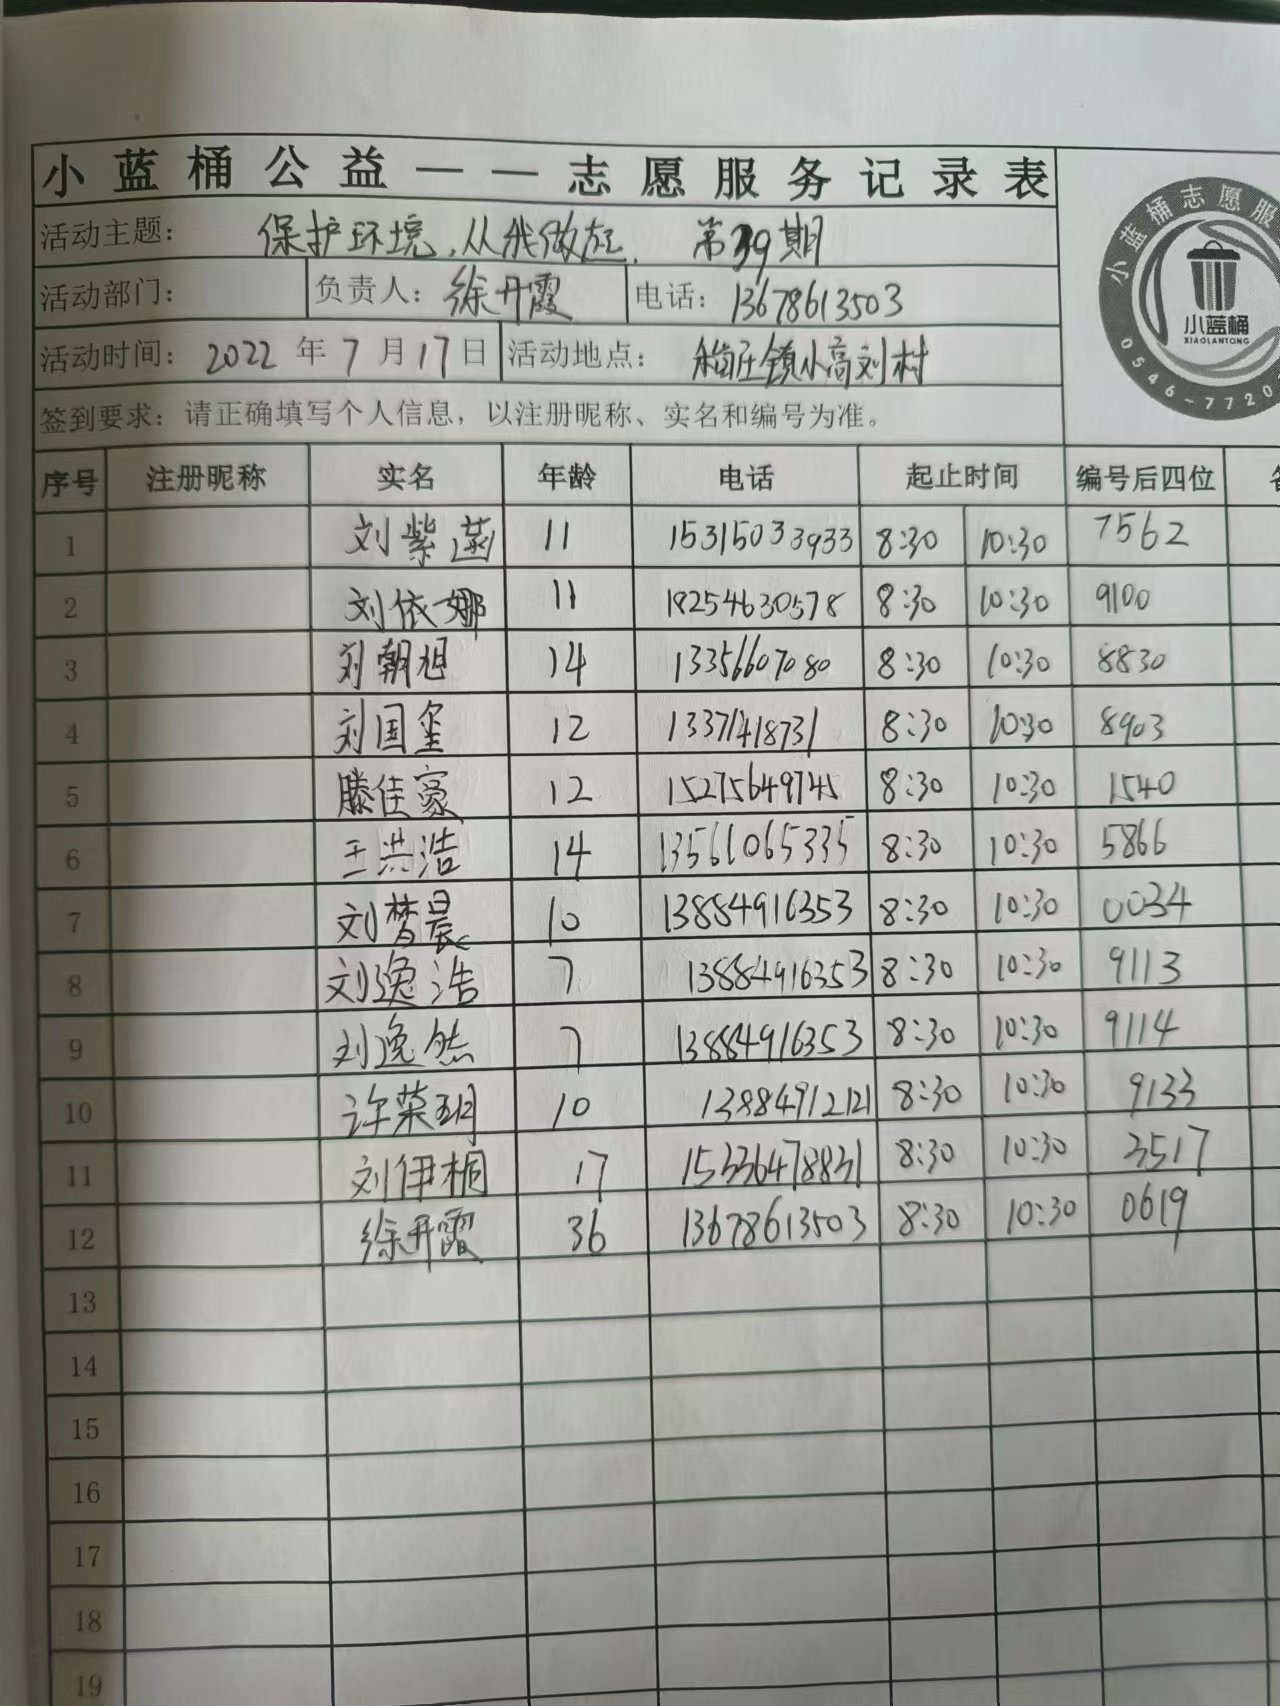 小蓝桶公益——志愿服务记录表
活动主题： 保护环境，从我做起． 第39期
活动部门： 负责人：徐丹霞 电话：13678613503
活动时间：2022年7月17日 活动地点： 稻庄镇小高刘村
签到要求：请正确填写个人信息，以注册昵称、实名和编号为准。
小蓝桶志愿服
小蓝桶
XIAOLANTONG
0546-7720
序号 注册昵称 实名 年龄 电话 起止时间 编号后四位
1 刘紫菡 11 15315033933 8:30 10:30 7562
2 刘依娜 11 18254630578 8:30 10:30 9100
3 刘朝旭 14 13356607080 8:30 10:30 8830
4 刘国玺 12 13371418731 8:30 10:30 8903
5 滕佳豪 12 15275649745 8:30 10:30 1540
6 王洪浩 14 13561065335 8:30 10:30 5866
7 刘梦晨 10 13884916353 8:30 10:30 0034
8 刘逸浩 7 13884916353 8:30 10:30 9113
9 刘逸然 7 13884916353 8:30 10:30 9114
10 许荣玥 10 13884912121 8:30 10:30 9133
11 刘伊桐 17 15336478831 8:30 10:30 3517
12 徐丹霞 36 13678613503 8:30 10:30 0619
13
14
15
16
17
18
19